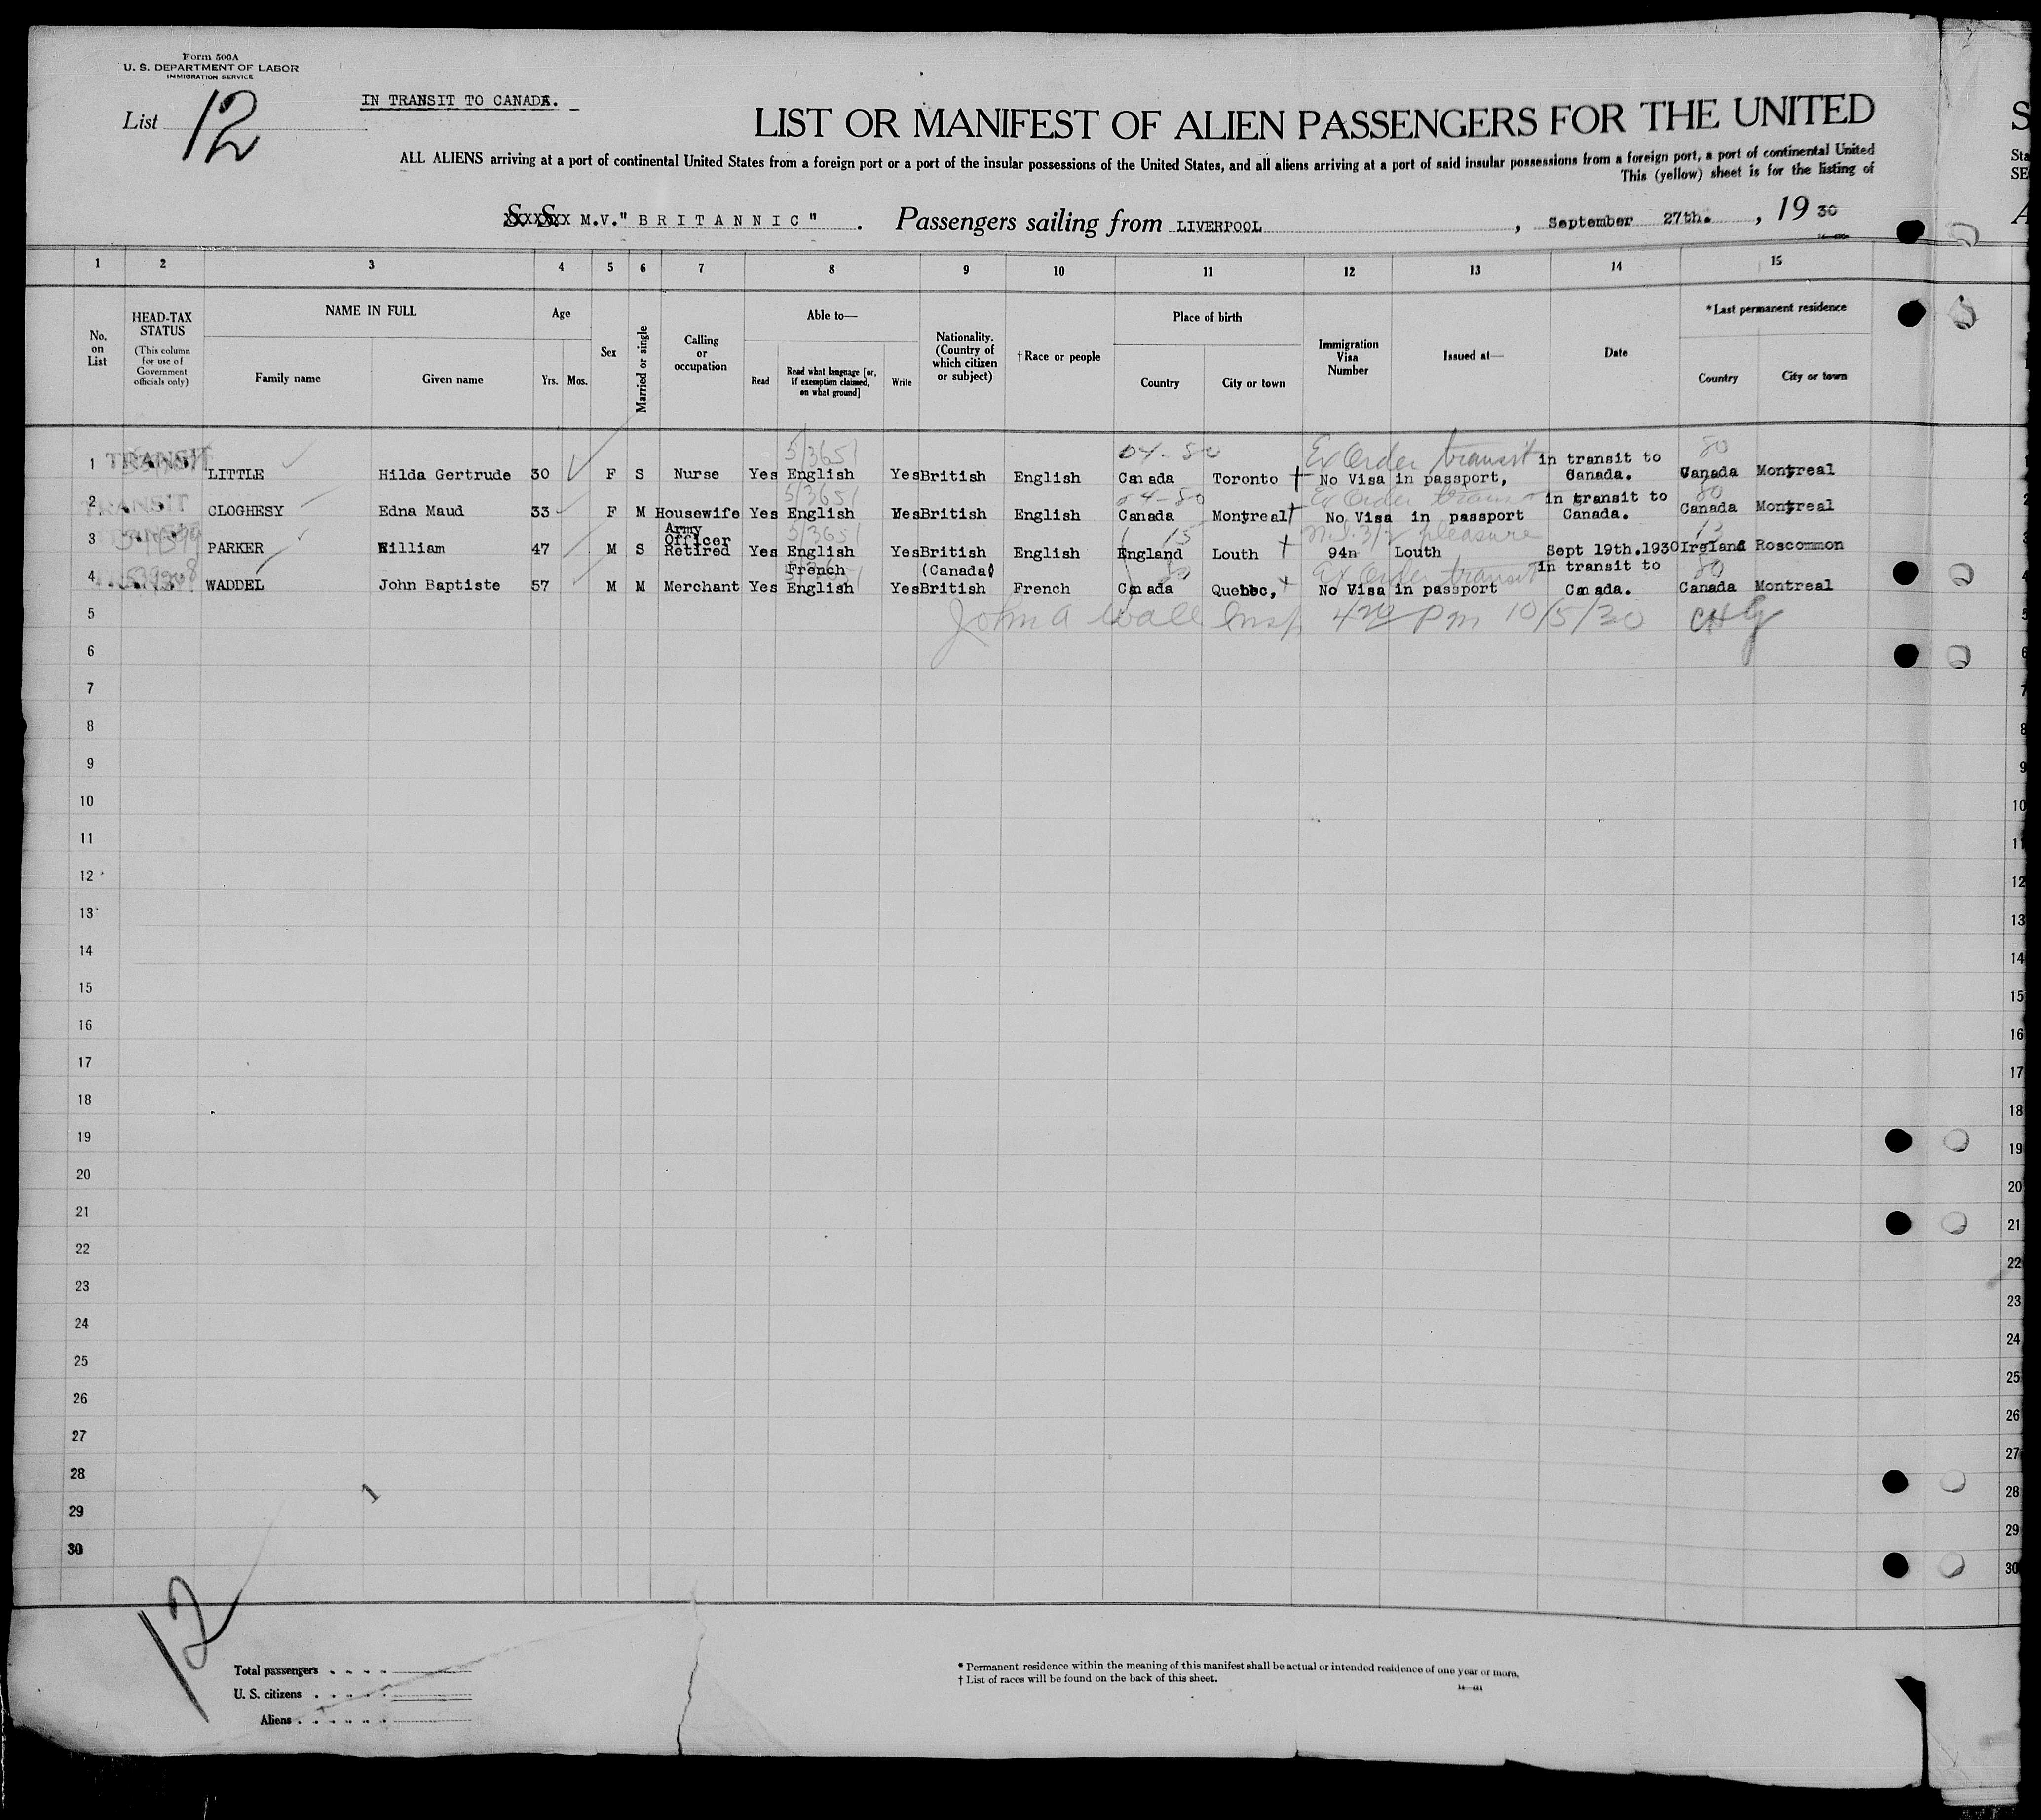 Form 500A
U. S. DEPARTMENT OF LABOR
IMMIGRATION SERVICE
List 12
IN TRANSIT TO CANADA.
LIST OR MANIFEST OF ALIEN PASSENGERS FOR THE UNITED
ALL ALIENS arriving at a port of continental United States from a foreign port or a port of the insular possessions of the United States, and all aliens arriving at a port of said insular possessions from a foreign port, a port of continental United
This (yellow) sheet is for the listing of
S. S. M.V." B R I T A N N I C " . Passengers sailing from LIVERPOOL , September 27th. , 19 30
1 2 3 4 5 6 7 8 9 10 11 12 13 14 15
No. on List
HEAD-TAX STATUS
(This column for use of Government officials only)
NAME IN FULL
Family name Given name
Age
Yrs. Mos.
Sex
Married or single
Calling or occupation
Able to—
Read Read what language [or, if exemption claimed, on what ground] Write
Nationality. (Country of which citizen or subject)
† Race or people
Place of birth
Country City or town
Immigration Visa Number
Issued at—
Date
* Last permanent residence
Country City or town
5/3651 04-80 Ex Order transit 80
1 TRANSIT LITTLE Hilda Gertrude 30 F S Nurse Yes English Yes British English Canada Toronto † No Visa in passport, in transit to Canada. Canada Montreal
5/3651 04-80 Ex Order 80
2 TRANSIT CLOGHESY Edna Maud 33 F M Housewife Yes English Yes British English Canada Montreal † No Visa in passport in transit to Canada. Canada Montreal
5/3651 15 pleasure 13
3 PARKER William 47 M S Army Officer Retired Yes English Yes British English England Louth † 94n Louth Sept 19th.1930 Ireland Roscommon
80 Ex Order transit 80
4 WADDEL John Baptiste 57 M M Merchant Yes French English Yes British (Canada) French Canada Quebec, † No Visa in passport in transit to Canada. Canada Montreal
5 John A Wall Insp 4 20 Pm 10/5/30 CHG
6
7
8
9
10
11
12
13
14
15
16
17
18
19
20
21
22
23
24
25
26
27
28
29
30
1
12
Total passengers
U. S. citizens
Aliens
* Permanent residence within the meaning of this manifest shall be actual or intended residence of one year or more.
† List of races will be found on the back of this sheet.
S
Sta
SE
A
1
2
3
4
5
6
7
8
9
10
11
12
13
14
15
16
17
18
19
20
21
22
23
24
25
26
27
28
29
30